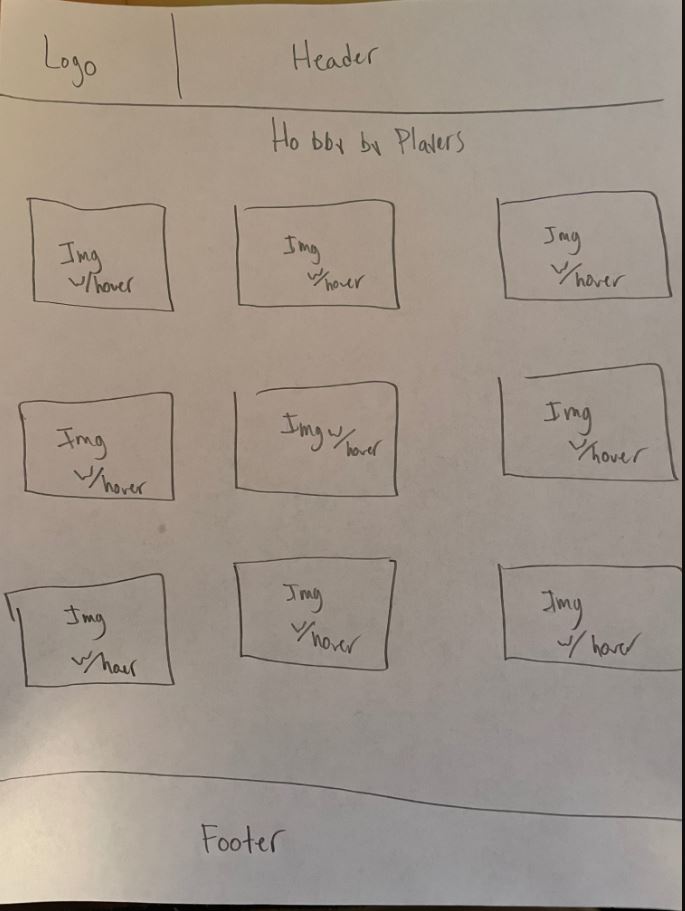 Logo
Header
Hobby by Players
Img
w/hover
Img
w/hover
Img
w/hover
Img
w/hover
Img w/hover
Img
w/hover
Img
w/haer
Img
w/hover
Img
w/hover
Footer